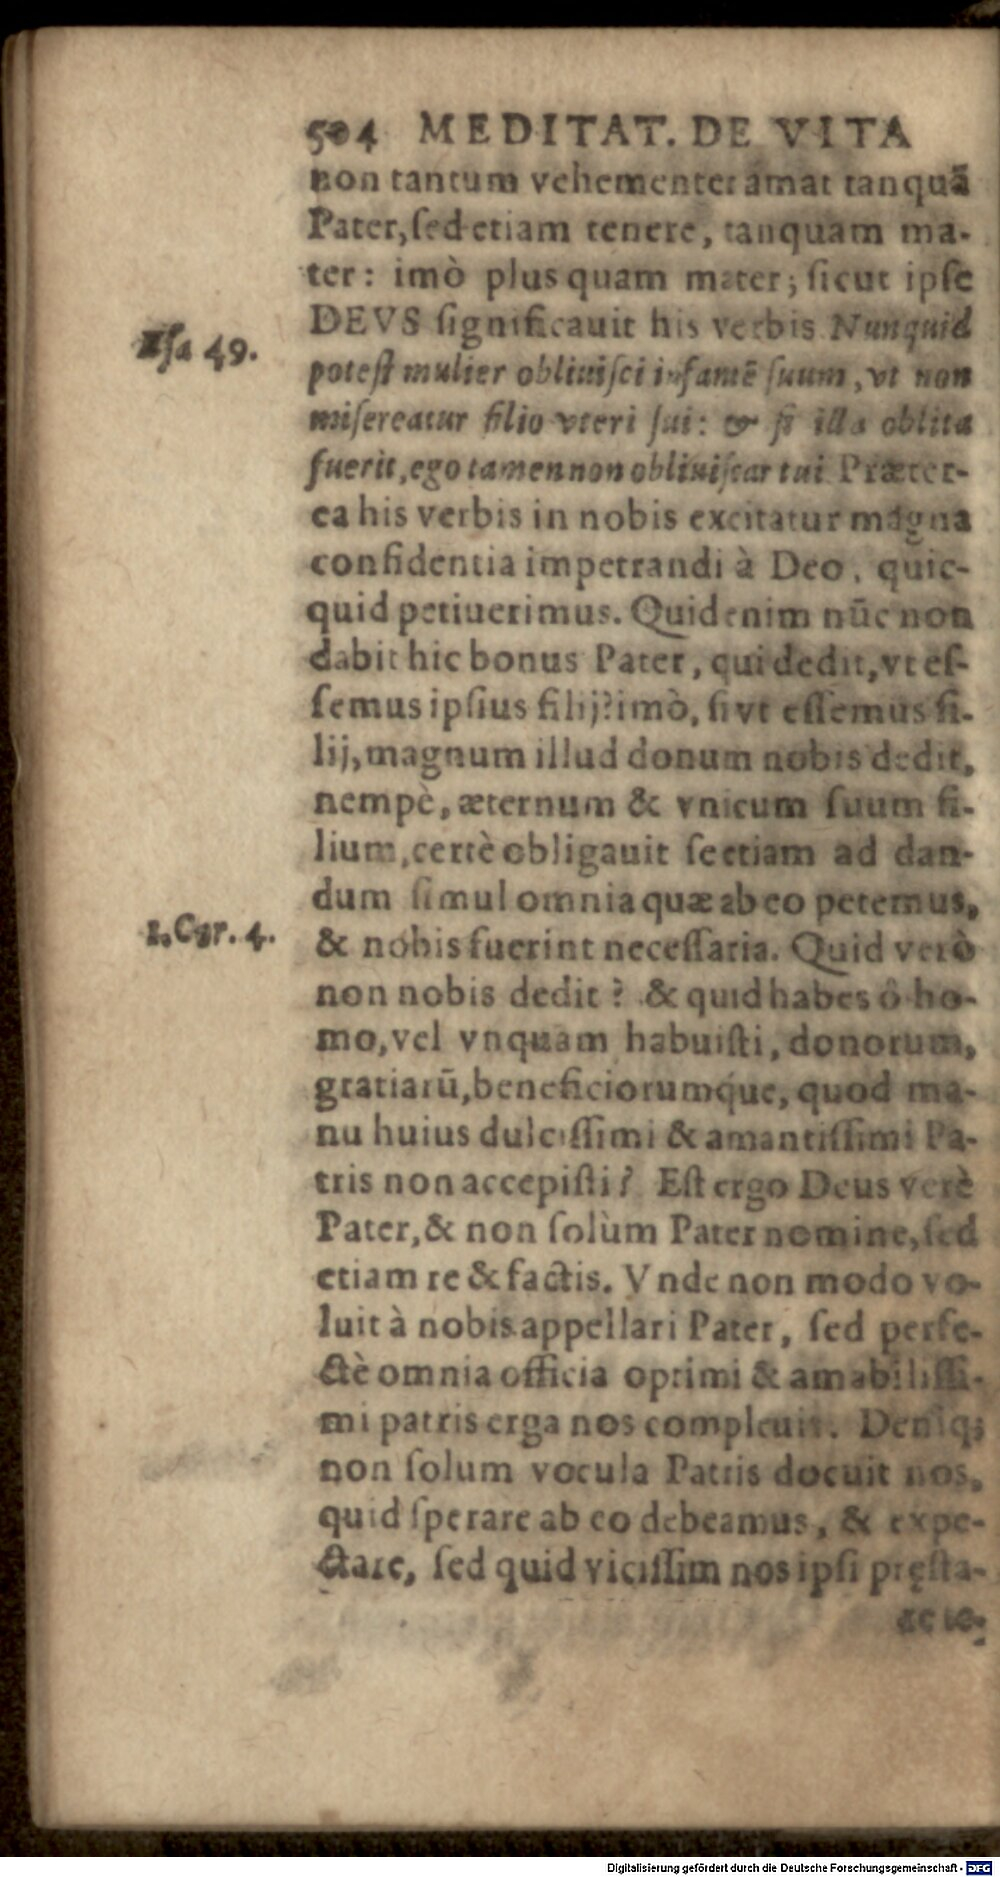 504 MEDITAT. DE VITA
non tantum vehementer amat tanquā
Pater, ſed etiam tenere, tanquam ma-
ter: imò plus quam mater; ſicut ipſe
DEVS ſignificauit his verbis Nunquid
Iſa 49.
poteſt mulier obliuiſci infantē ſuum, vt non
miſereatur filio vteri ſui: & ſi illa oblita
fuerit, ego tamen non obliuiſcar tui Præter-
ea his verbis in nobis excitatur magna
confidentia impetrandi à Deo, quic-
quid petiuerimus. Quid enim nūc non
dabit hic bonus Pater, qui dedit, vt eſ-
ſemus ipſius filij? imò, ſi vt eſſemus fi-
lij, magnum illud donum nobis dedit,
nempè, æternum & vnicum ſuum fi-
lium, certè obligauit ſe etiam ad dan-
dum ſimul omnia quæ ab eo petemus,
1. Cor. 4.
& nobis fuerint neceſſaria. Quid verò
non nobis dedit? & quid habes ô ho-
mo, vel vnquam habuiſti, donorum,
gratiarū, beneficiorumque, quod ma-
nu huius dulciſſimi & amantiſſimi Pa-
tris non accepiſti? Eſt ergo Deus verè
Pater, & non ſolùm Pater nomine, ſed
etiam re & factis. Vnde non modo vo-
luit à nobis appellari Pater, ſed perfe-
ctè omnia officia optimi & amabiliſſi-
mi patris erga nos compleuit. Deniq;
non ſolum vocula Patris docuit nos,
quid ſperare ab eo debeamus, & expe-
ctare, ſed quid viciſſim nos ipſi pręſta-
Digitalisierung gefördert durch die Deutsche Forschungsgemeinschaft - DFG